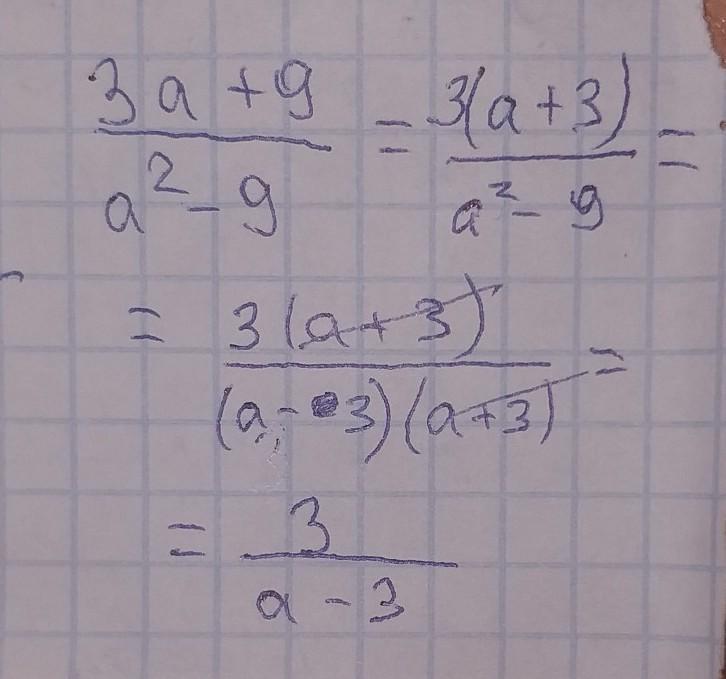 (3a + 9)/(a² - 9) = 3(a + 3)/(a² - 9) =
= 3(a + 3)/((a - 3)(a + 3)) =
= 3/(a - 3)